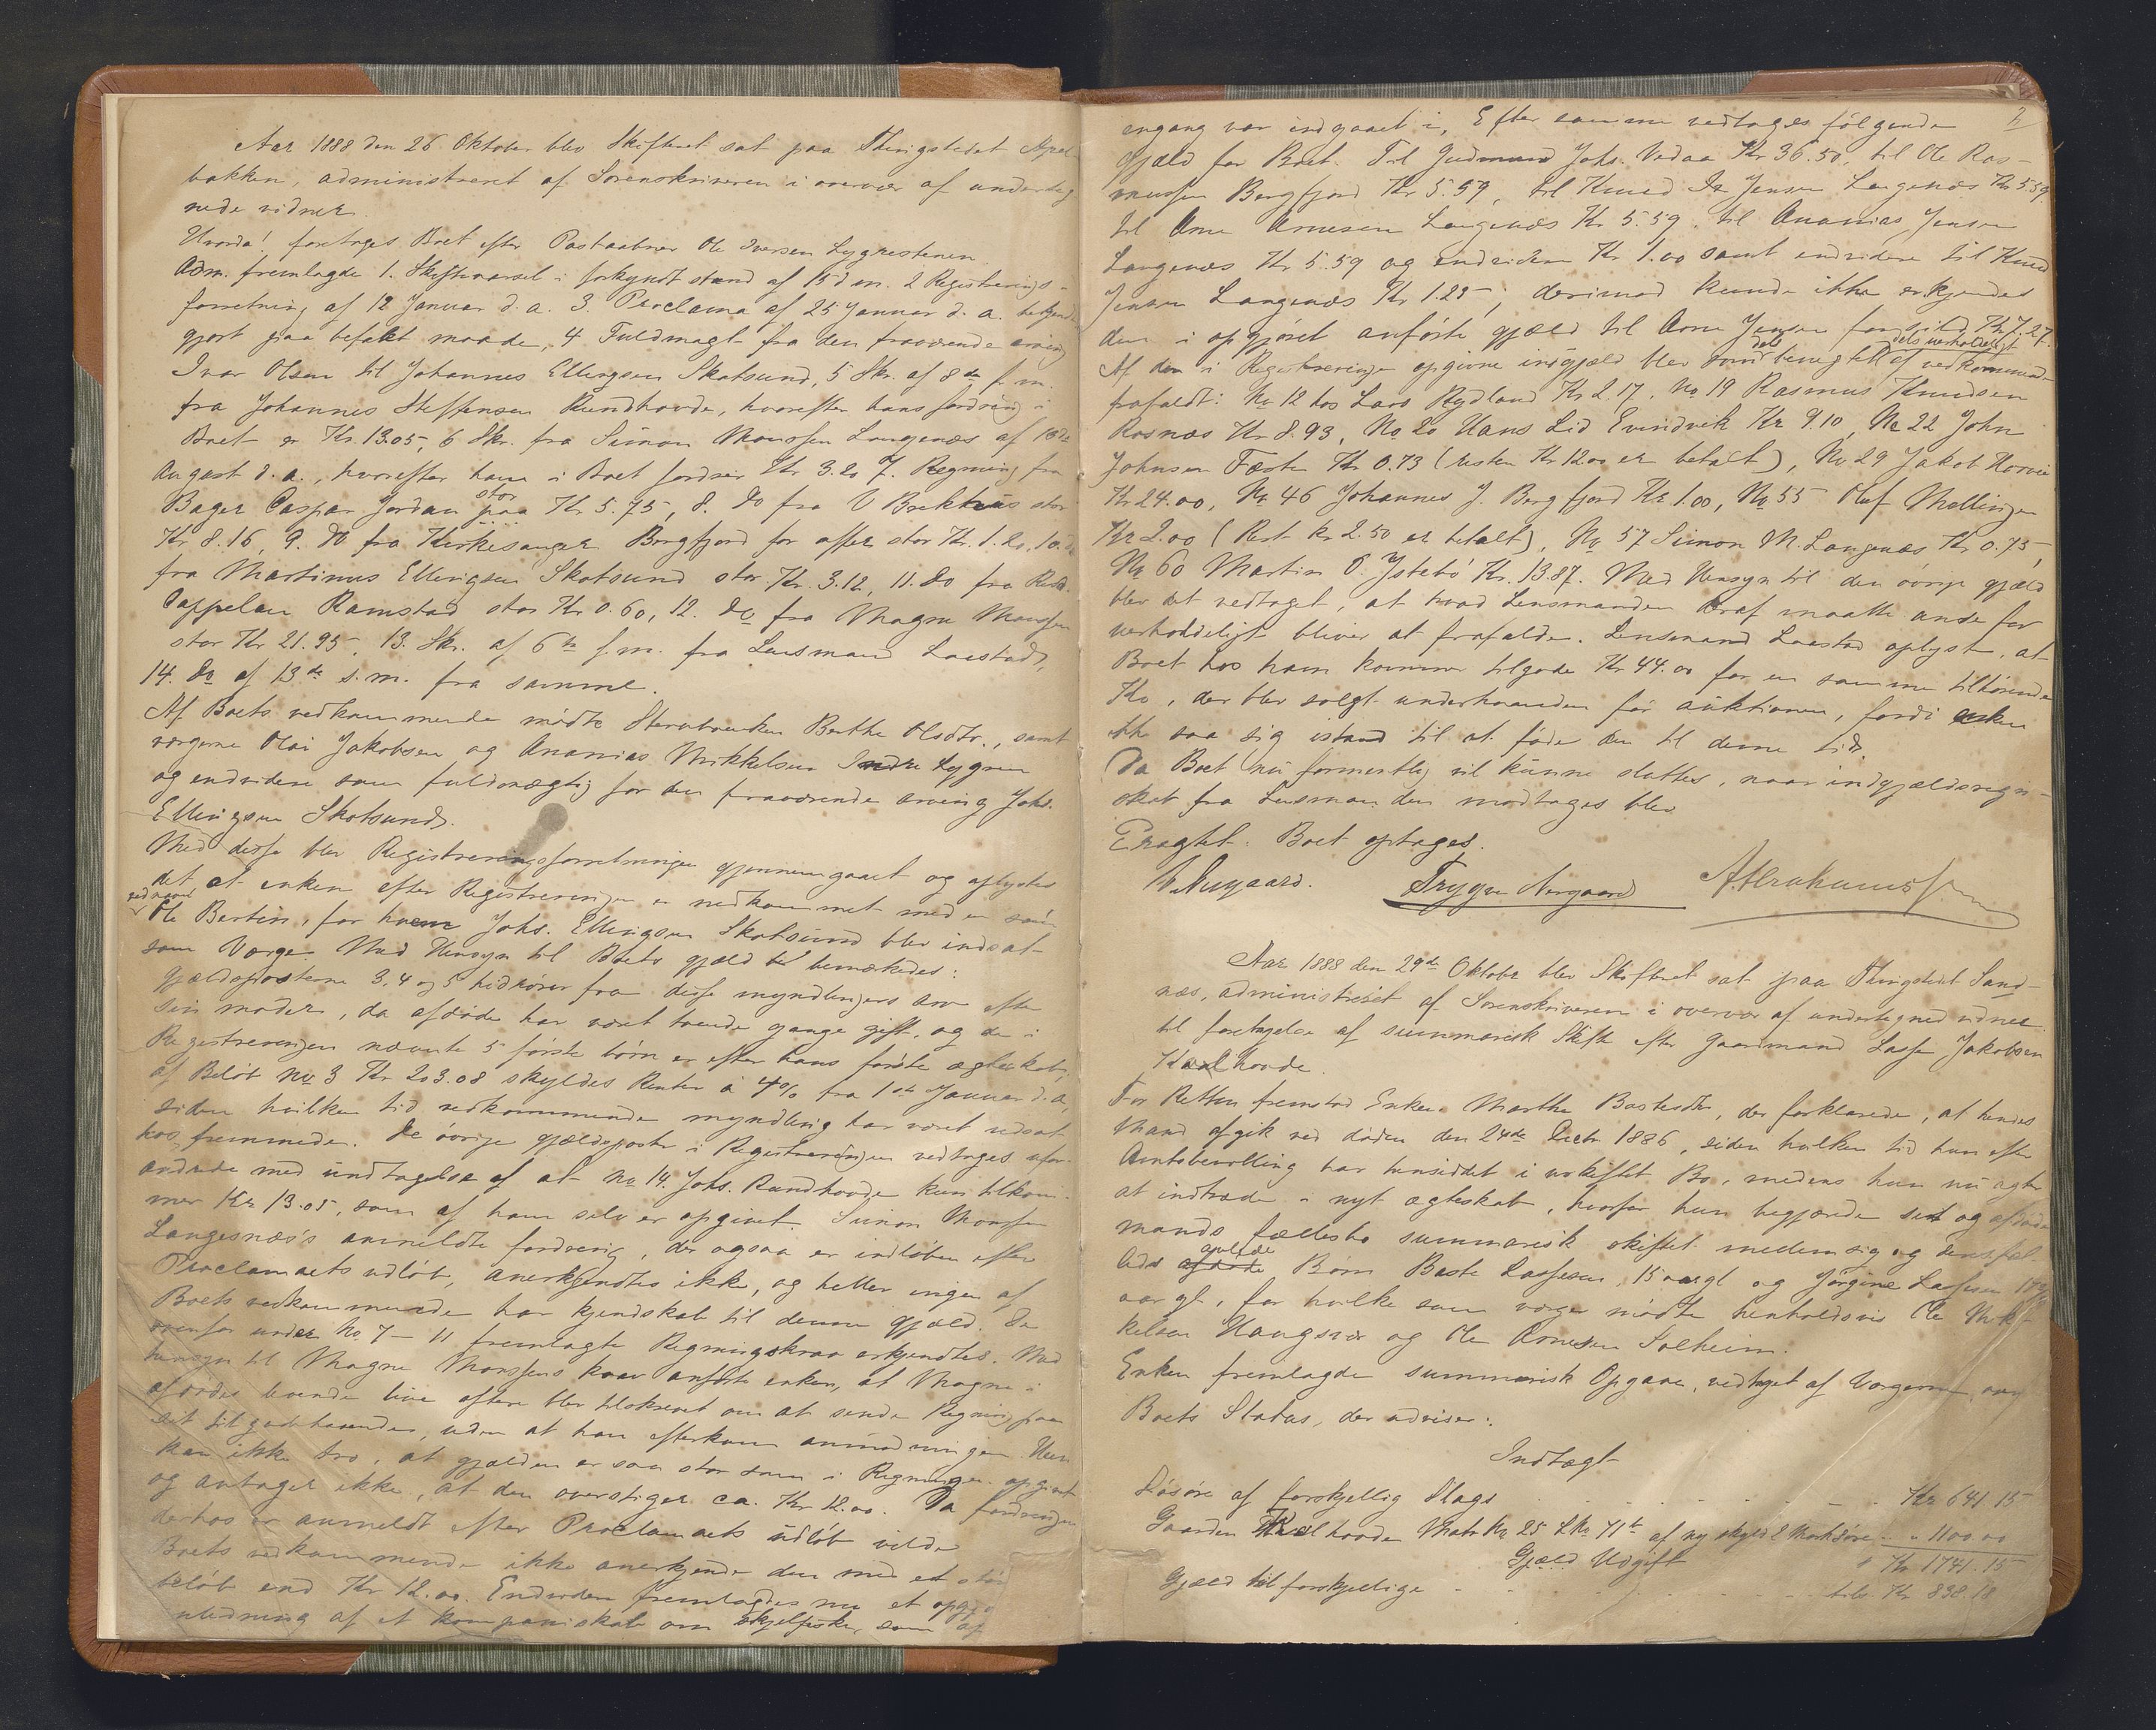 Aar 1888 den 26 Oktober blev Skifteret sat paa Thingstedet Apal-
bakken, administreret af Sorenskriveren i overvær af underteg
nede vidner.
Hvorda! foretoges Boet efter Postaabner Ole Iversen Lygrestenen.
Adm. fremlagde 1. Skiftevarsel i forkyndt stand af 15 d. m. 2 Registrerings-
forretning af 12 Januar d. a. 3. Proclama af 25 Januar d. a. bekjendt
gjort paa befalet maade, 4 Fuldmagt fra den fraværende arving
Ivar Olsen til Johannes Ellingsen Skotsund, 5 Skr. af 8de f. m.
fra Johannes Steffensen Rundhovde, hvorefter hans fordring i
Boet er Kr. 13.05, 6 Skr. fra Simon Monssen Langenæs af 18de
August d. a., hvorefter han i Boet fordrer Kr 3.20 7. Regning fra
Bager Caspar Jordan stor paa Kr 5.75, 8. Do fra O Brekhus stor
Kr 8.16, 9. Do fra Kirkesanger Bergfjord for offer stor Kr. 1.20, 10. do
fra Martinus Ellingsen Skotsund stor Kr. 3.12, 11. Do fra Resid.
Cappelan Ramstad stor Kr 0.60, 12. Do fra Magne Monssen
stor Kr 21.95, 13. Skr. af 6te f. m. fra Lensmand Laastad,
14. Do af 13de s. m. fra samme.
Af Boets vedkommende mødte Stervboenken Berthe Olsdtr., samt
værgerne Oloi Jakobsen og Ananias Mikkelsen Indre Lygren
og endvidere som fuldmægtig for den fraværende arving Johs.
Ellingsen Skotsund.
Med disse blev Registreringsforretningen gjennemgaaet og oplystes
det at enken efter Registreringen er nedkommet med en søn
ved navn Ole Bertin, for hvem Johs. Ellingsen Skotsund blev indsat
som Værge. Med Hensyn til Boets gjæld bemærkedes:
Gjældsposterne 3, 4 og 5 hidrører fra disse myndlingers arv efter
sin moder, da afdøde har været tvende gange gift, og de i
Registreringen nævnte 5 første børn er efter hans første ægteskab,
af Beløb No 3 Kr 203.08 skyldes Renter á 4% fra 1ste Januar d. a,
siden hvilken tid vedkommende myndling har været udsat
hos fremmede. De øvrige gjældsposter i Registreringen vedtages ufor-
andrede med undtagelse af at No 14. Johs. Rundhovde kun tilkom-
mer Kr 13.05, som af ham selv er opgivet. Simon Monssen
Langenæs's anmeldte fordring, der ogsaa er indløben efter
Proclamaets udløb, anerkjendtes ikke, og heller ingen af
Boets vedkommende har kjendskab til denne gjæld. De
ovenfor under No 7 – 11 fremlagte Regningskrav erkjendtes. Med
hensyn til Magne Monssens krav anførte enken, at Magne i
afdødes levende live oftere blev tilskrevet om at sende Regning paa
sit tilgodehavende, uden at han efterkom anmodningen. Hun
kan ikke tro, at gjælden er saa stor som i Regningen opgivet
og antager ikke, at den overstiger ca. Kr 12.00. Da fordringen
derhos er anmeldt efter Proclamaets udløb vilde
Boets vedkommende ikke anerkjende den med et større
beløb end Kr 12.00. Endvidere fremlagdes nu et opgjør
i anledning af et kompaniskab om skjelfiske, som af
2
engang var indgaaet i, Efter samme vedtoges følgende
gjæld for Boet. Til Gudmund Johs. Vadaa Kr 36.50, til Ole Ras-
mussen Bergfjord Kr 5.59, til Knud Jensen Langenæs Kr 5.59
til Arne Arnesen Langenæs Kr 5.59, til Ananias Jensen
Langenæs Kr 5.59 og endvidere Kr 1.00 samt endvidere til Knud
Jensen Langenæs Kr 1.25; derimod kunde ikke erkjendes
den i opgjøret anførte gjæld til Arne Jensen for sild Kr 7.27.
Af den i Registreringen opgivne indgjæld blev som dels benegtet af vedkommende dels uerholdeligt
frafaldt: No 12 hos Lars Rydland Kr 2.17, No 19 Rasmus Knudsen
Rosnæs Kr 8.93, No 20 Hans Lid Evindvik Kr 9.10, No 22 John
Johnsen Fæste Kr 0.73 (resten Kr 12.00 er betalt), No 29 Jakob
Kr 24.00, No 46 Johannes J. Bergfjord Kr 1.00, No 55 Oluf Mollingen
Kr 2.00 (Rest Kr 2.50 er betalt), No 57 Simon M. Langenæs Kr 0.75,
No 60 Martin O. Ystebø Kr. 13.87. Med Hensyn til den øvrige gjæld
blev det vedtaget, at hvad Lensmanden deraf maatte anse for
uerholdeligt bliver at frafalde. Lensmand Laastad oplyst, at
Boet hos ham kommer tilgode Kr 44.00 for en samme tilhørende
Ko, der blev solgt underhaanden før auktionen, fordi enken
ikke saa sig istand til at føde den til denne tid.
Da Boet nu formentlig vil kunne sluttes, naar indgjældsregn-
skab fra Lensmanden modtages blev
Eragtet: Boet optages.
Augaard. Trygve Aargaard A. Abrahamssen
Aar 1888 den 29de Oktober blev Skifteret sat paa Thingstedet Sand-
næs, administreret af Sorenskriveren i overvær af undertegned vidner
til foretagelse af summarisk Skifte efter Gaardmand Lasse Jakobsen
Kvalhovde.
For Retten fremstod Enken Marthe Bastesdtr, der forklarede, at hendes
Mand afgik ved døden den 24de Decbr 1886, siden hvilken tid hun efter
Amtsbevilling har hensiddet i uskiftet Bo, medens hun nu agter
at indtræde i nyt ægteskab, hvorfor hun begjærede sit og afdøde
mands fællesbo summarisk skiftet mellem sig og densfæl-
leds avlede Børn Baste Lassesen 15 aargl og Jørgine Lassen 17½
aar gl, for hvilke som værge mødte henholdsvis Ole Mik-
kelsen Haugsvær og Ole Arnesen Solheim.
Enken fremlagde summarisk Opgave, vedtaget af Værgerne, over
Boets Status, der udviser:
Indtægt
Løsøre af forskjellig Slags Kr 641.15
Gaarden Kvalhovde Matr No 25 L No 71b af ny skyld 2 Mark 1100.00
Kr 1741.15
Gjæld Udgift
Gjæld til forskjellige tils. Kr 838.18